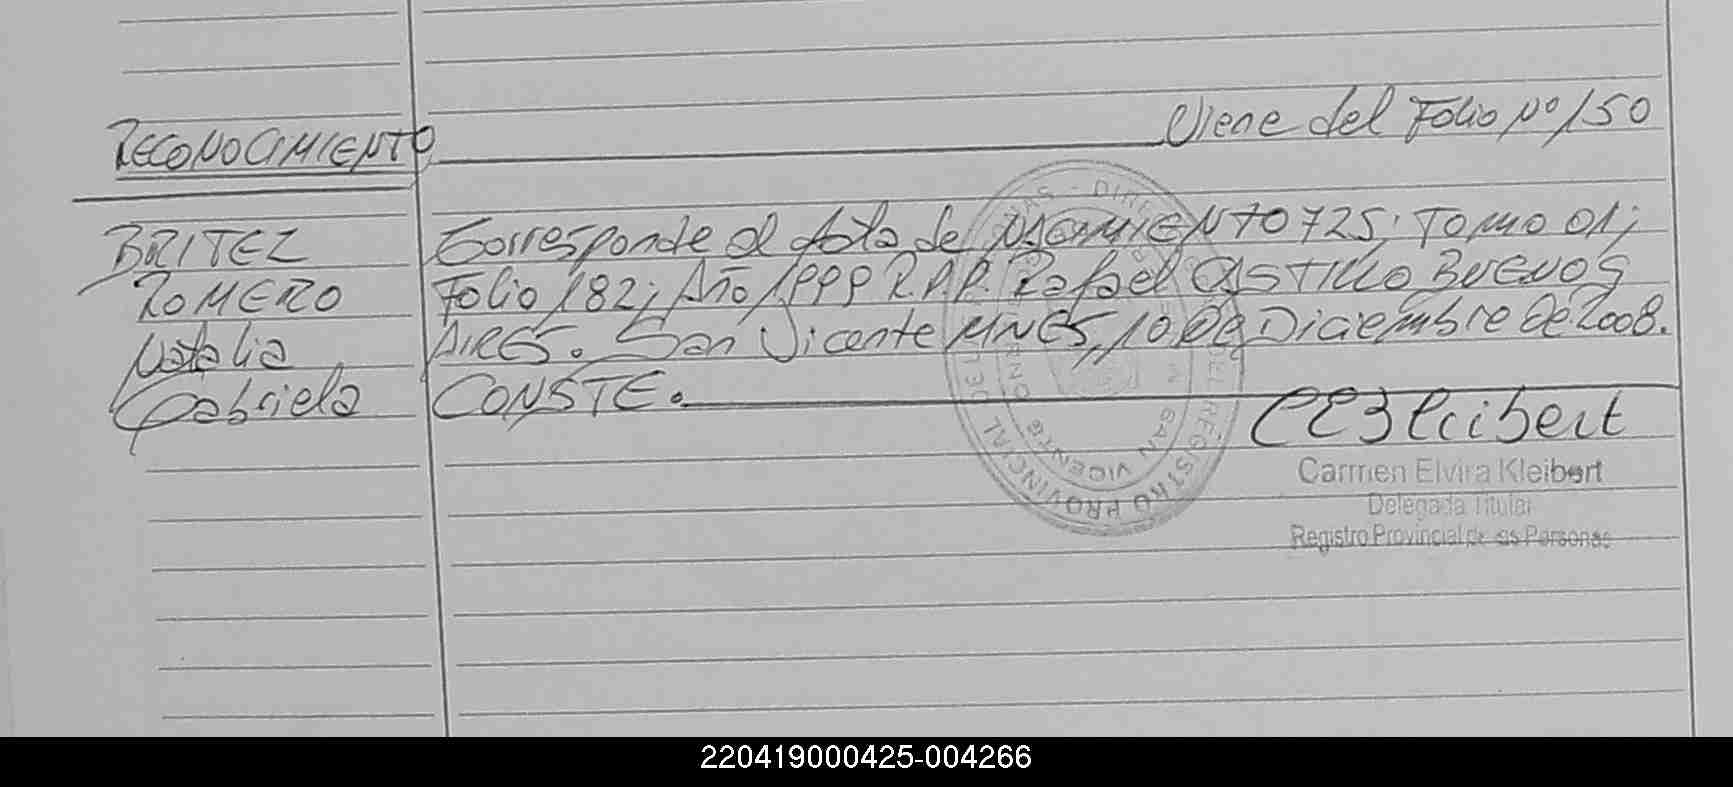 Viene del Folio Nº 150
RECONOCIMIENTO
BRITEZ
ROMERO
Natalia
Gabriela
Corresponde al Acta de NACIMIENTO 725; TOMO 01;
Folio 182; Año 1999 R.P.P. Rafael CASTILLO BUENOS
AIRES. San Vicente MNES, 10 De Diciembre De 2008.
CONSTE.
Carmen Elvira Kleibert
Delegada Titular
Registro Provincial de las Personas
REGISTRO PROVINCIAL DE
SAN VICENTE
220419000425-004266